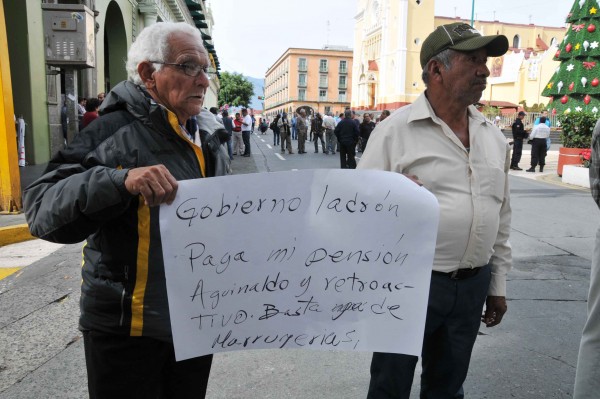 Gobierno ladrón
Paga mi pensión
Aguinaldo y retroac-
TIVO. Basta ya de
Marruyerias,